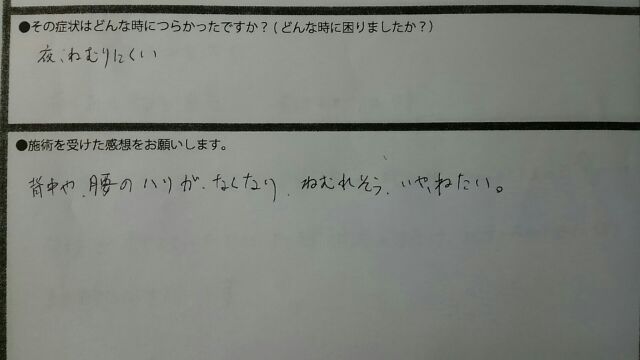 ●その症状はどんな時につらかったですか？(どんな時に困りましたか？)
夜、ねむりにくい
●施術を受けた感想をお願いします。
背中や、腰のハリが、なくなり、ねむれそう、いや、ねたい。